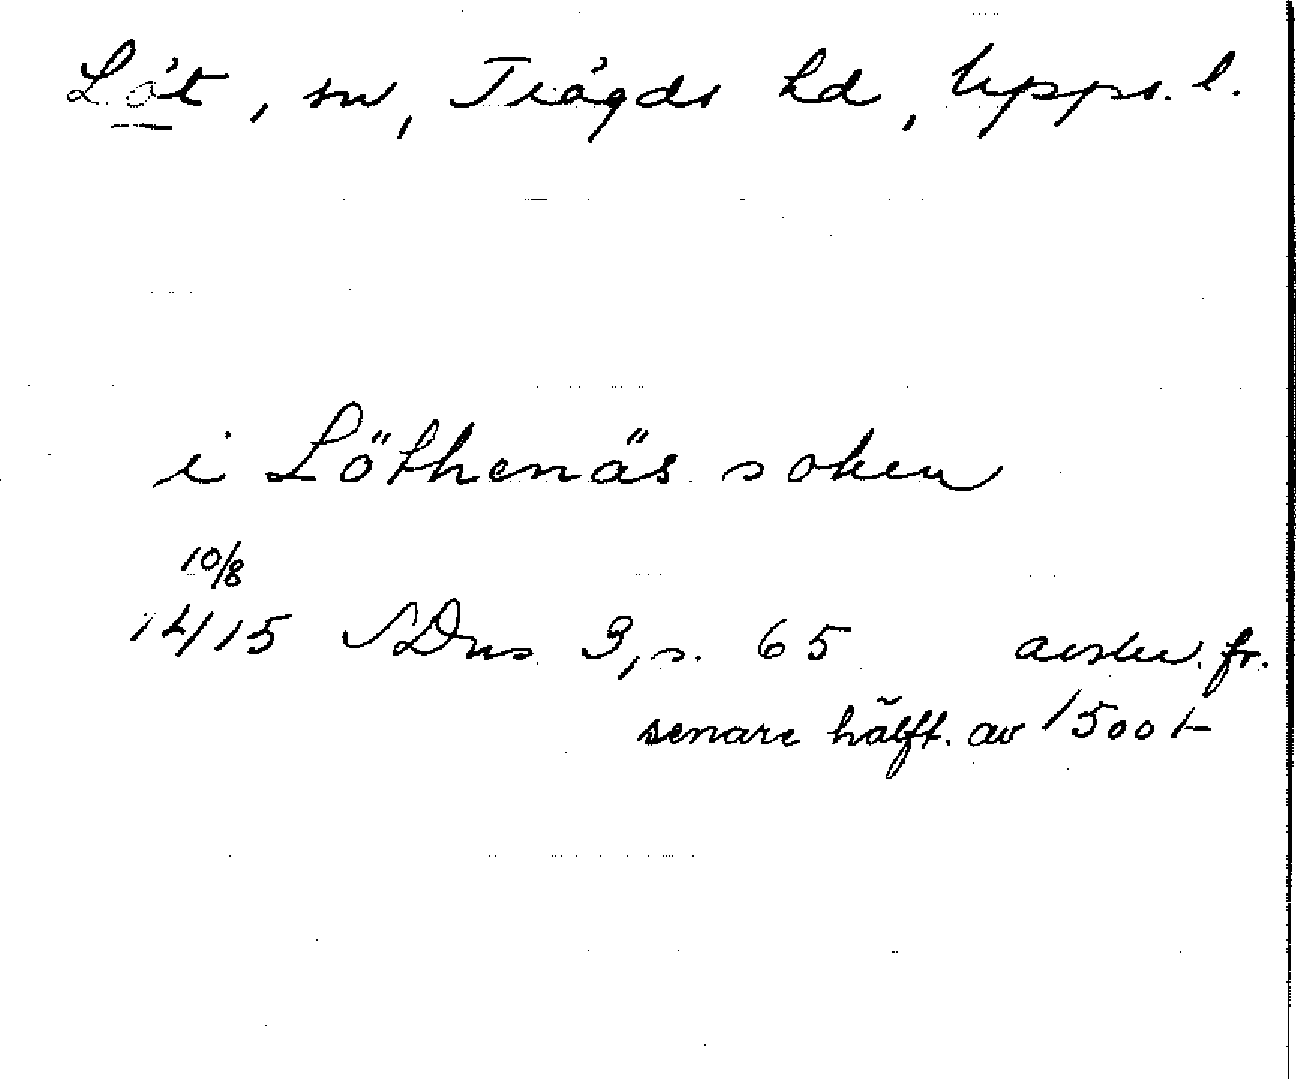 Löt, sn, Trögds hd, Upps. l.
i Löthenäs soken
10/8
1415 SDns 3, s. 65 avskr. fr.
senare hälft. av 1500 t